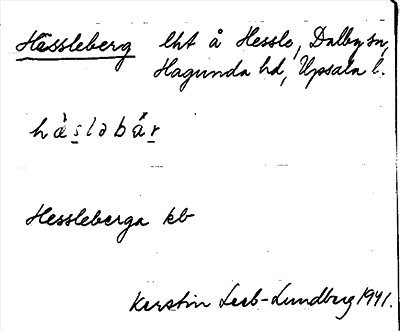 Hässleberg lht å Hesslo, Dalby sn,
Hagunda hd, Upsala l.
hæ̀sləbár
Hessleberga kb
Kerstin Leeb-Lundberg 1941.